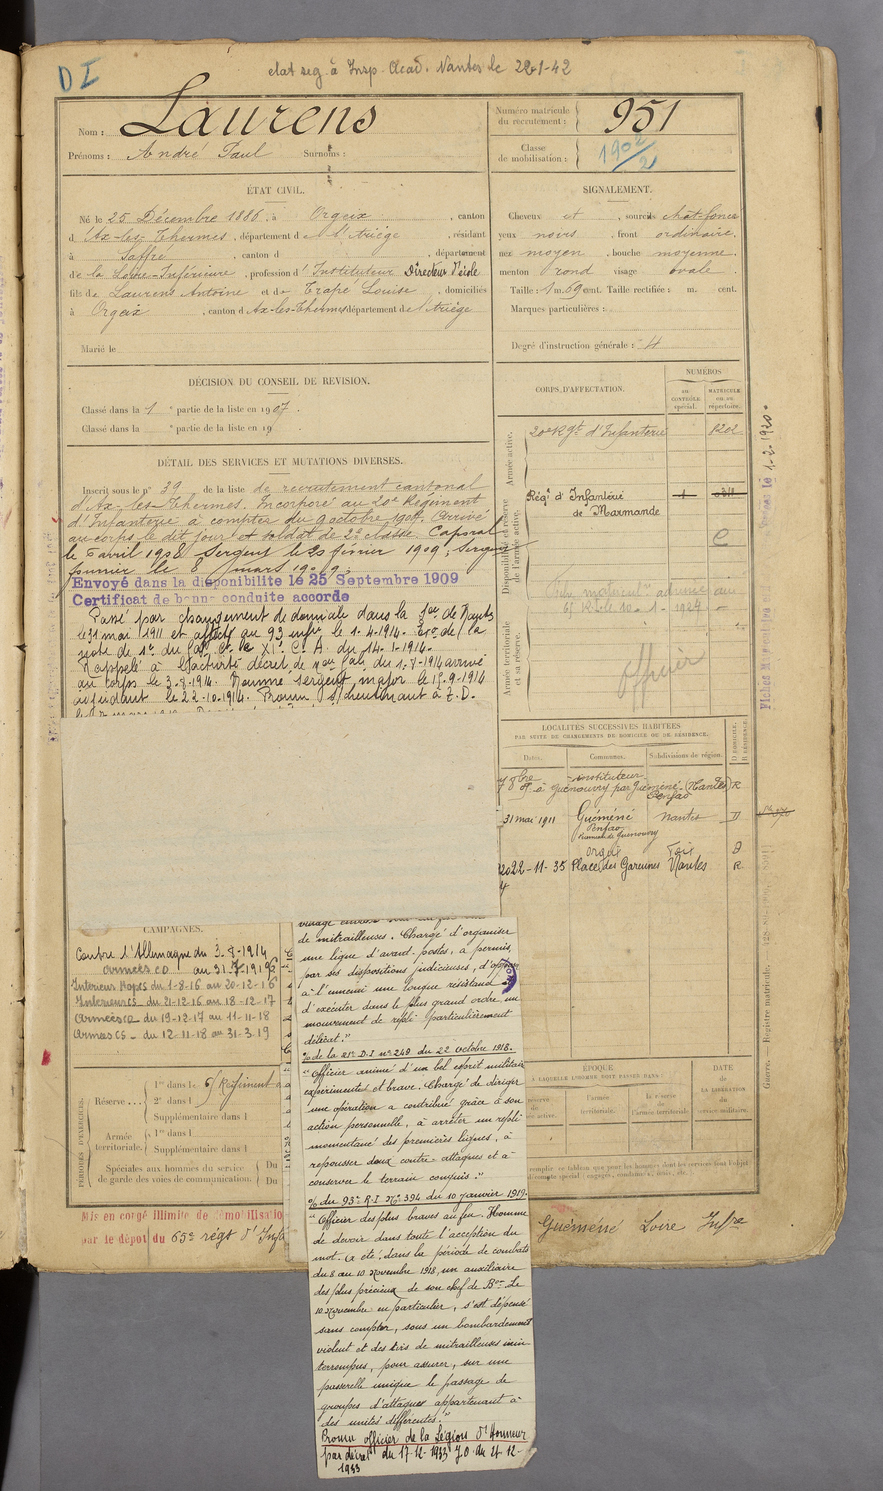 D I
etat seg. à Insp. Acad. Nantes le 22-1-42
Nom : Laurens
Prénoms : André Paul Surnoms :
Numéro matricule du recrutement : 951
Classe de mobilisation : 1902/2
ÉTAT CIVIL.
Né le 25 Décembre 1886, à Orgeix, canton
d'Ax-les-Thermes, département de l'Ariège, résidant
à Saffré, canton d , département
de la Loire-Inférieure, profession d'Instituteur Directeur d'école
fils de Laurens Antoine et de Trapé Louise, domiciliés
à Orgeix, canton d'Ax-les-Thermes département de l'Ariège
Marié le
SIGNALEMENT.
Cheveux et , sourcils chât-foncé
yeux noirs , front ordinaire,
nez moyen , bouche moyenne.
menton rond visage ovale .
Taille : 1 m. 69 cent. Taille rectifiée : m. cent.
Marques particulières :
Degré d'instruction générale : 4
DÉCISION DU CONSEIL DE REVISION.
Classé dans la 1 e partie de la liste en 1907.
Classé dans la e partie de la liste en 19 .
DÉTAIL DES SERVICES ET MUTATIONS DIVERSES.
Inscrit sous le n° 39 de la liste de recrutement cantonal
d'Ax-les-Thermes. Incorporé au 20e Régiment
d'Infanterie à compter du 9 octobre 1907. Arrivé
au corps le dit jour et soldat de 2e classe. Caporal
le 5 avril 1908. Sergent le 20 février 1909, Sergent
fourrier le 8 mars 1909.
Envoyé dans la disponibilité le 25 Septembre 1909
Certificat de bonne conduite accordé
Passé par changement de domicile dans la Son de Nantes
le 31 mai 1911 et affecté au 93 infie le 1-4-1914.
note de du XIe C. A. du 14-1-1914.
Rappelé à l'activité décret de du 1-8-1914 arrivé
au corps le 3-8-1914. Nommé sergent major le 15-9-1914
adjudant le 22-10-1914. Promu s/lieutenant à T. D.
CORPS D'AFFECTATION.
NUMÉROS
AU CONTRÔLE spécial.
MATRICULE ou au répertoire.
Armée active.
20e Rgt d'Infanterie 1202
Disponibilité et réserve de l'armée active.
Régt d'Infanterie 1 311
de Marmande
C
65 R.I. le 10-1-1924
Armée territoriale et sa réserve.
officier
LOCALITÉS SUCCESSIVES HABITÉES
PAR SUITE DE CHANGEMENTS DE DOMICILE OU DE RÉSIDENCE.
Dates. Communes. Subdivisions de région. D. DOMICILE. R. RÉSIDENCE.
instituteur
à Guénouvry par Guéméné-Penfao (Nantes) R
31 mai 1911 Guéméné Penfao Nantes D
hameau de Guénouvry
Foix D
22-11-35 Place des Garennes Nantes R
CAMPAGNES.
Contre l'Allemagne du 3-8-1914
armées CD au 31-7-1916
Intérieur Hopes du 1-8-16 au 20-12-16
Intérieur CS du 21-12-16 au 18-12-17
Armées CD du 19-12-17 au 11-11-18
Armées CS - du 12-11-18 au 31-3-19
de mitrailleuses. Chargé d'organiser
une ligne d'avant-postes, a permis,
par ses dispositions judicieuses, d'opposer
à l'ennemi une longue résistance
d'exécuter dans le plus grand ordre un
mouvement de repli particulièrement
délicat."
O/ de la 21e D.I n° 249 du 22 octobre 1918.
"Officier animé d'un bel esprit militaire
expérimenté et brave. Chargé de diriger
une opération a contribué grâce à son
action personnelle, à arrêter un repli
momentané des premières lignes, à
repousser deux contre-attaques et à
conserver le terrain conquis."
O/ du 93e R.I N° 394 du 10 janvier 1919.
"Officier des plus braves au feu. Homme
de devoir dans toute l'acception du
mot. A été, dans la période de combats
du 8 au 10 Novembre 1918, un auxiliaire
des plus précieux de son chef de Bon. Le
10 Novembre en particulier, s'est dépensé
sans compter, sous un bombardement
violent et des tirs de mitrailleuses inin-
terrompus, pour assurer, sur une
passerelle unique le passage de
groupes d'attaques appartenant à
des unités différentes."
Promu officier de la Légion d'Honneur
par décret du 17-12-1933 J.O. du 21-12-
1933
PÉRIODES D'EXERCICES.
Réserve ... 1re dans le 65 Régiment d
2e dans l
Supplémentaire dans l
Armée territoriale. 1re dans l
Supplémentaire dans l
Spéciales aux hommes du service
de garde des voies de communication. Du
Du
ÉPOQUE
À LAQUELLE L'HOMME DOIT PASSER DANS
l'armée territoriale.
la réserve de l'armée territoriale
DATE de LA LIBÉRATION du service militaire.
Mis en congé illimité de démobilisation
par le dépôt du 65e régt d'Infa
Guéméné Loire Infre
Guerre. — Registre matricule. —